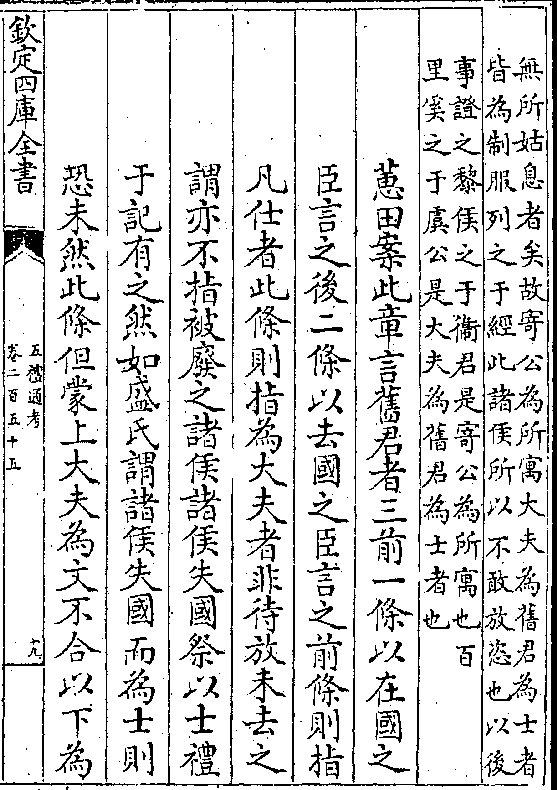 無所姑息者矣故寄公為所寓大夫為舊君為士者
皆為制服列之于經此諸侯所以不敢放恣也以後
事證之黎侯之于衞君是寄公為所寓也百
里奚之于虞公是大夫為舊君為士者也
蕙田案此章言舊君者三前一條以在國之
臣言之後二條以去國之臣言之前條則指
凡仕者此條則指為大夫者非待放未去之
謂亦不指被廢之諸侯諸侯失國祭以士禮
于記有之然如盛氏謂諸侯失國而為士則
恐未然此條但蒙上大夫為文不合以下為
欽定四庫全書
五禮通考
卷二百五十五
十九